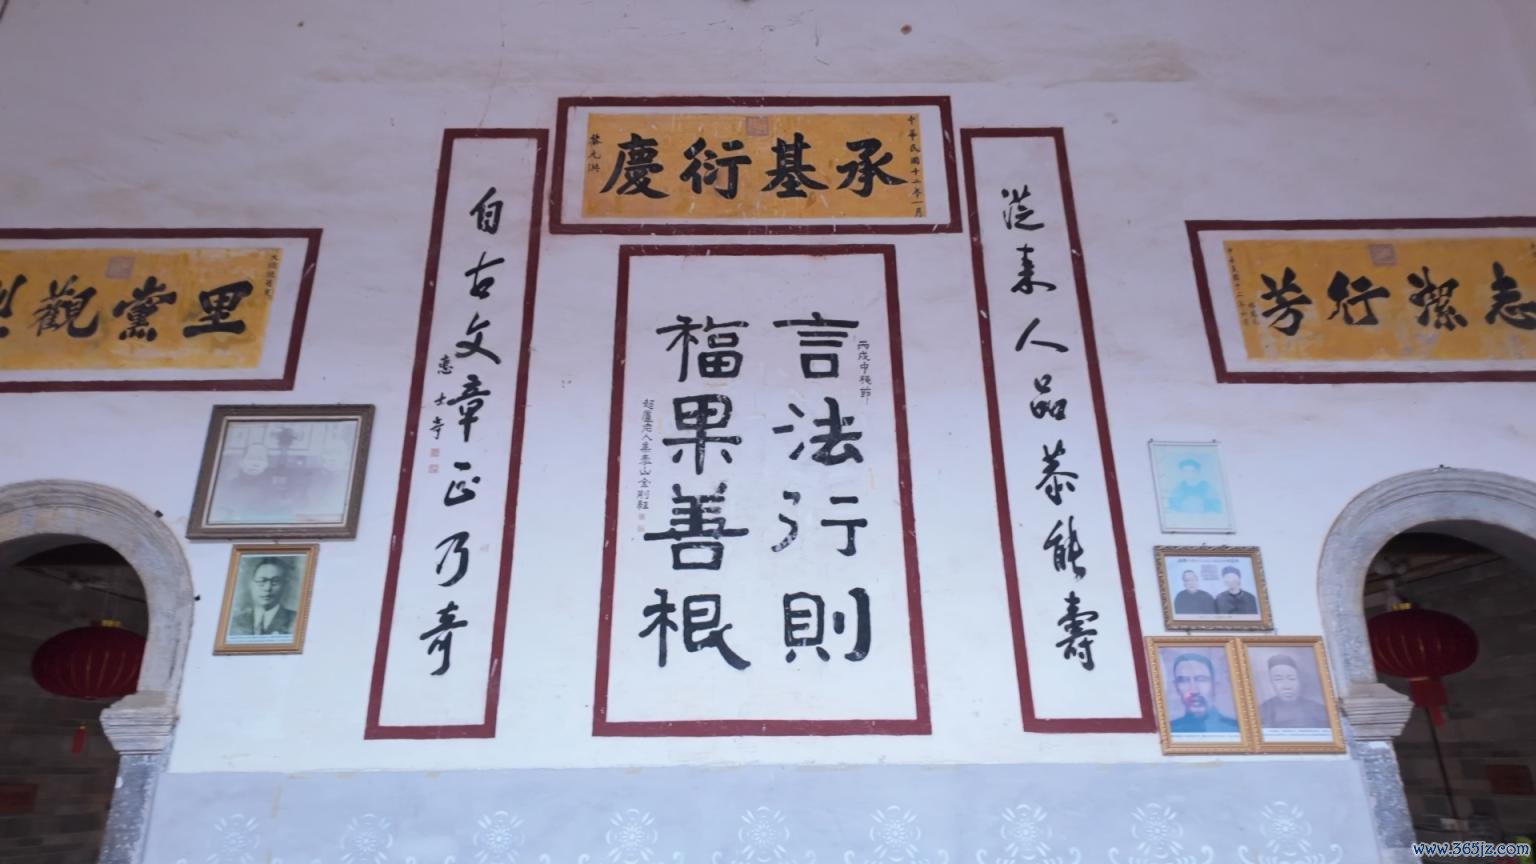 承基衍慶
中華民國十二年一月
黎元洪
從來人品恭能壽
自古文章正乃奇
惠士奇
言法行則
福果善根
丙戌中秋節
里黨觀型
志潔行芳
www.365jz.com